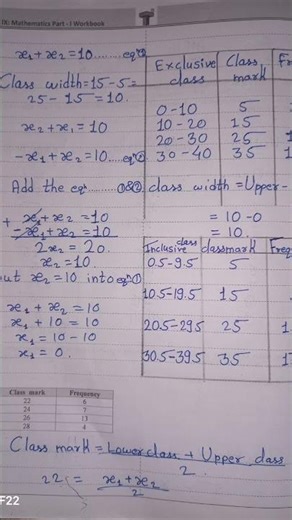 IX: Mathematics Part - I Workbook
x₁+x₂=10.......eqⁿ②
Class width=15-5=
25-15=10.
x₂+x₁=10
-x₁+x₂=10.....eqⁿ②
Add the eqⁿ..........①&②.
+ x₁+x₂=10
-x₁+x₂=10
2x₂=20.
x₂=10
put x₂=10 into eqⁿ①
x₁+x₂=10
x₁+10=10
x₁=10-10
x₁=0.
Exclusive class Class mark
0-10 5
10-20 15
20-30 25
30-40 35
class width=Upper-
=10-0
=10.
Inclusive class classmark Freq
0.5-9.5 5
10.5-19.5 15
20.5-29.5 25
30.5-39.5 35
Class mark Frequency
22 6
24 7
26 13
28 4
Class mark=Lowerclass+Upper class
2
22 = x₁+x₂
2
F22